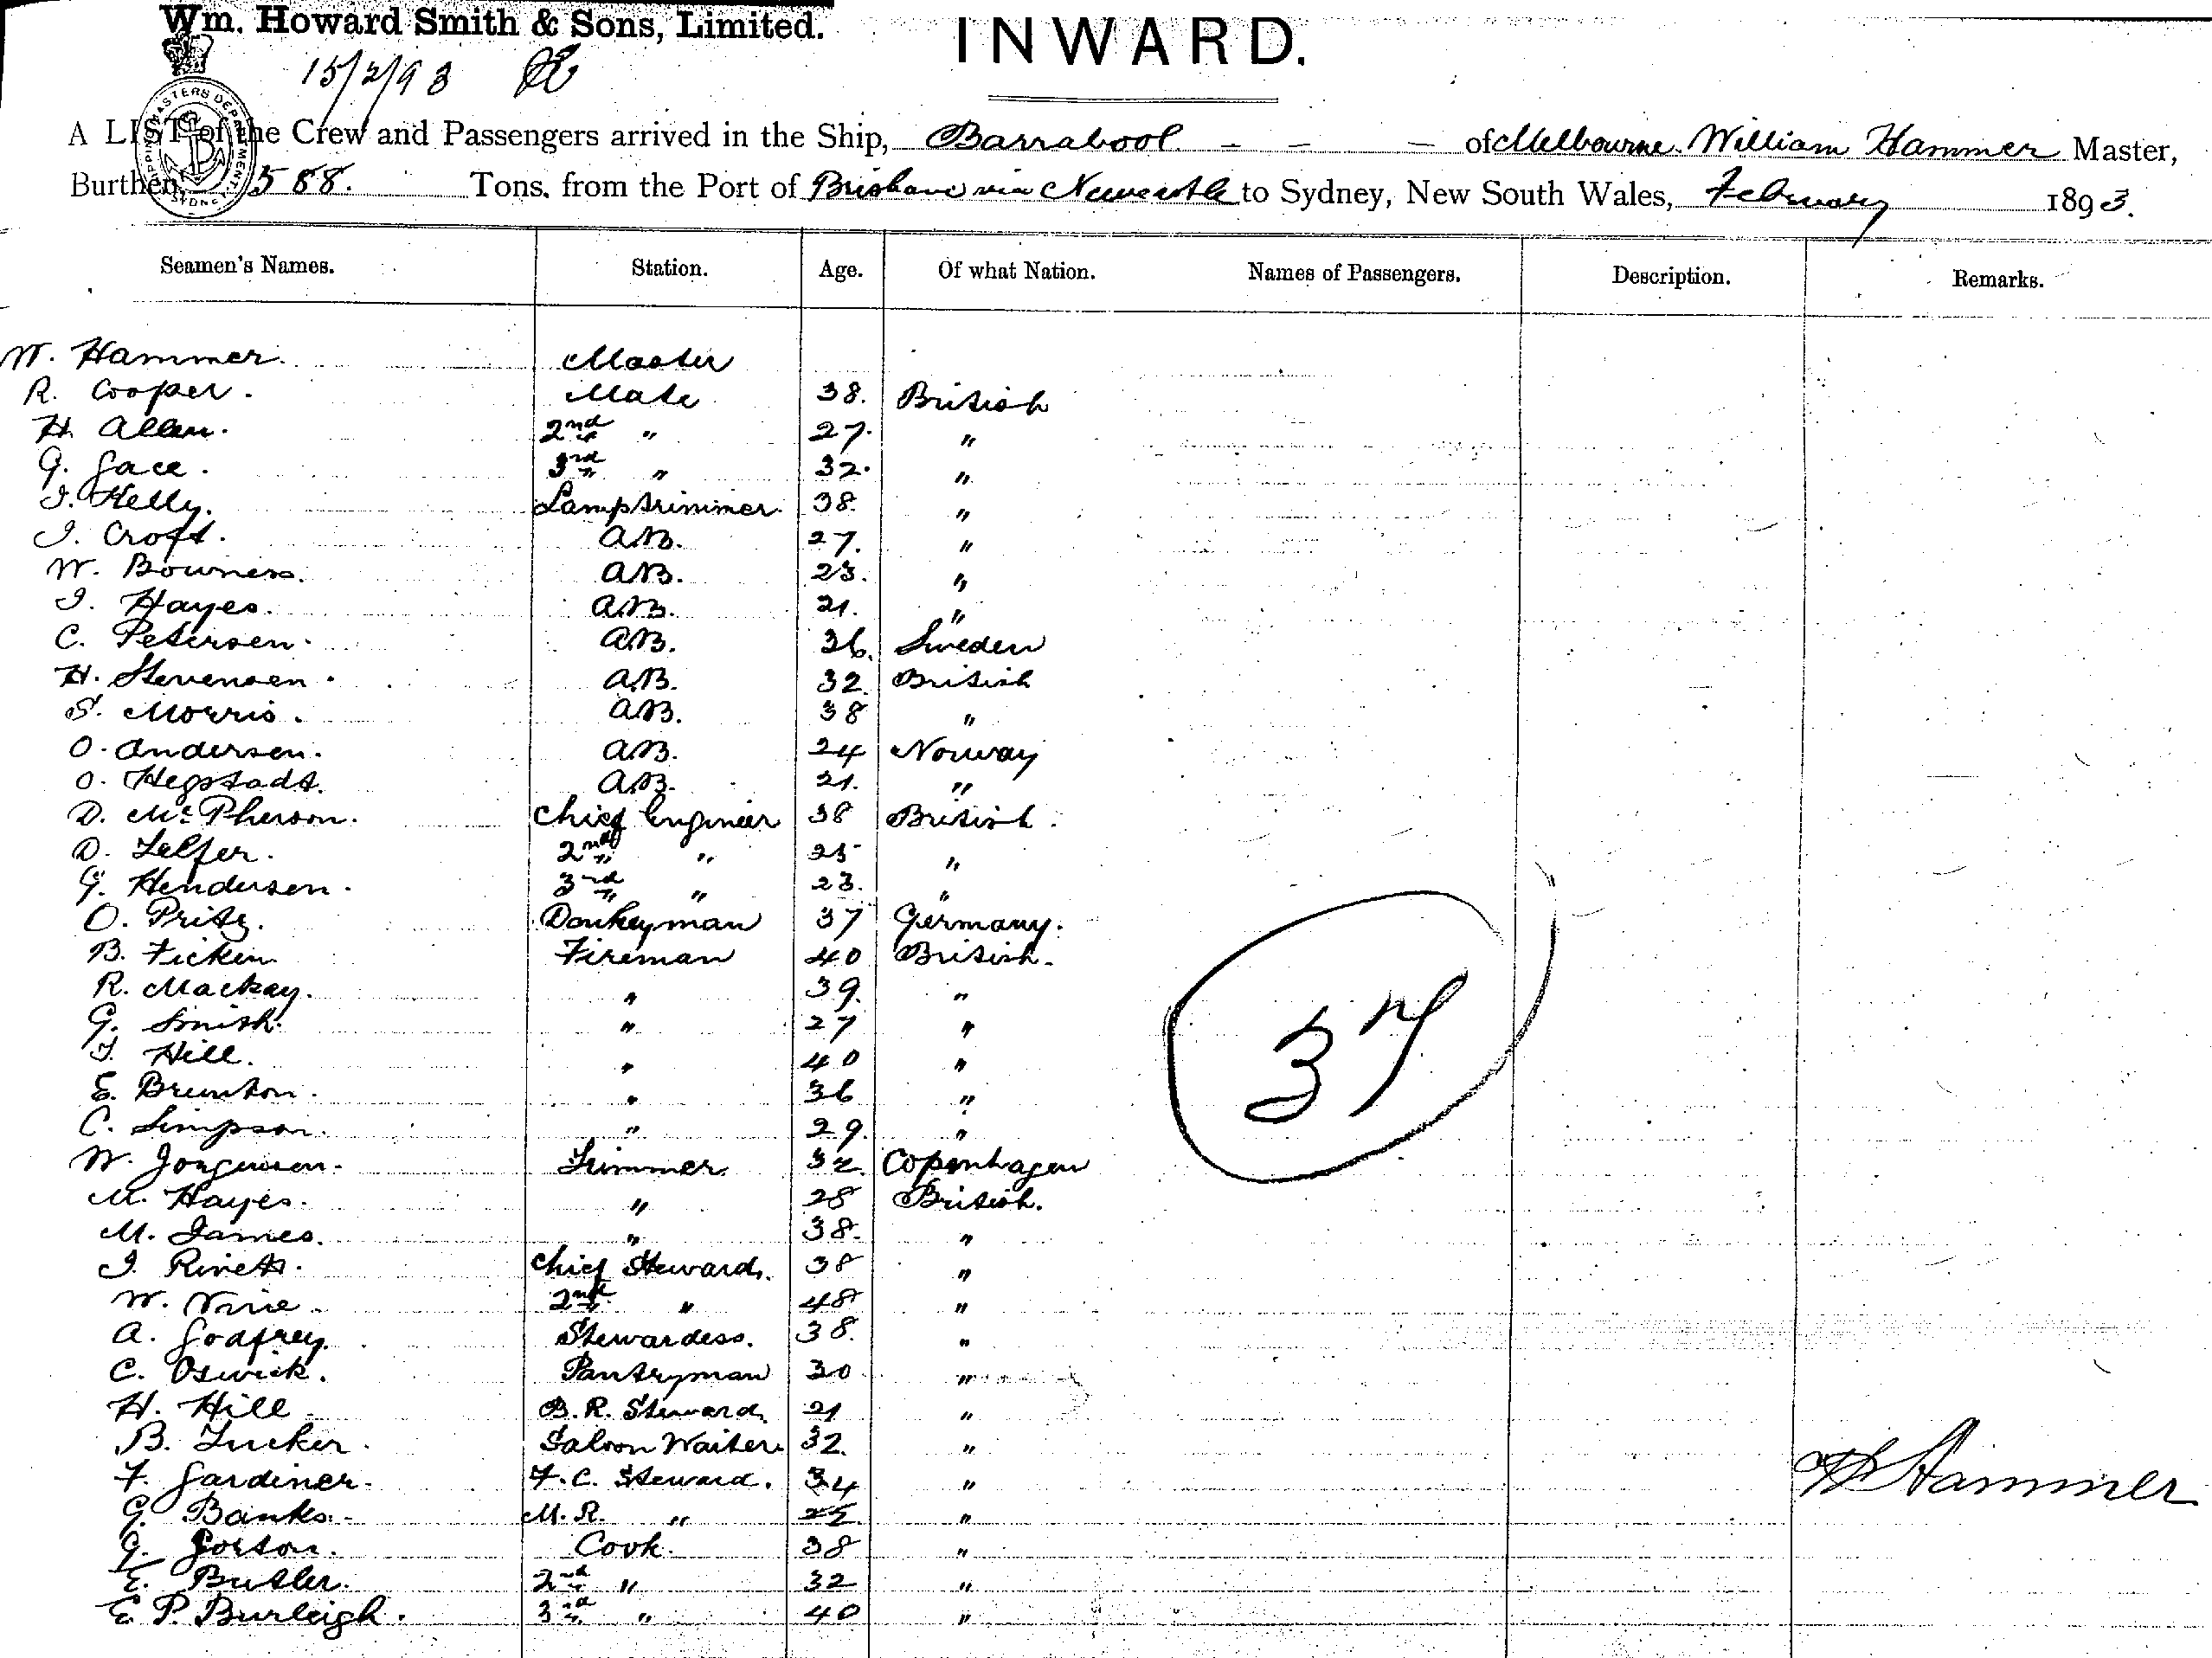 Wm. Howard Smith & Sons, Limited.
INWARD.
15/2/93
A LIST of the Crew and Passengers arrived in the Ship, Barrabool - - - of Melbourne. William Hammer Master,
Burthen, 588. Tons, from the Port of Brisbane via Newcastle to Sydney, New South Wales, February 1893.
SHIPPING MASTERS DEPARTMENT. SYDNEY
Seamen's Names. Station. Age. Of what Nation. Names of Passengers. Description. Remarks.
W. Hammer. Master
R. Cooper. Mate 38. British
H. Allen. 2nd " 27. "
G. Gace. 3rd " 32. "
J. Kelly. Lamptrimmer 38. "
J. Croft. A.B. 27. "
W. Bowness. A.B. 23. "
J. Hayes. A.B. 21. "
C. Petersen. A.B. 36. Sweden
H. Stevensen. A.B. 32. British
S. Morris. A.B. 38 "
O. Andersen. A.B. 24 Norway
O. Hegstadt. A.B. 21. "
D. McPherson. Chief Engineer 38 British.
D. Telfer. 2nd " 25 "
G. Hendersen. 3rd " 23. "
O. Pritz. Donkeyman 37 Germany.
B. Ficken Fireman 40 British.
R. Mackay. " 39. "
G. Smith. " 27 "
J. Hill. " 40 "
E. Brunton. " 36 "
C. Simpson. " 29. "
W. Jorgensen. Trimmer 32 Copenhagen
M. Hayes. " 28 British.
M. James. " 38. "
J. Rivett. Chief Steward. 38 "
W. 2nd " 48 "
A. Godfrey. Stewardess. 38. "
C. Oswick. Pantryman 30 "
H. Hill B.R. Steward. 21 "
B. Tucker. Saloon Waiter 32. "
F. Gardiner. F.C. Steward. 34 "
G. Banks. M.R. " 25 "
G. Gorton. Cook. 38 "
E. Butler. 2nd " 32 "
E. P. Burleigh. 3rd " 40 "
37
W Hammer